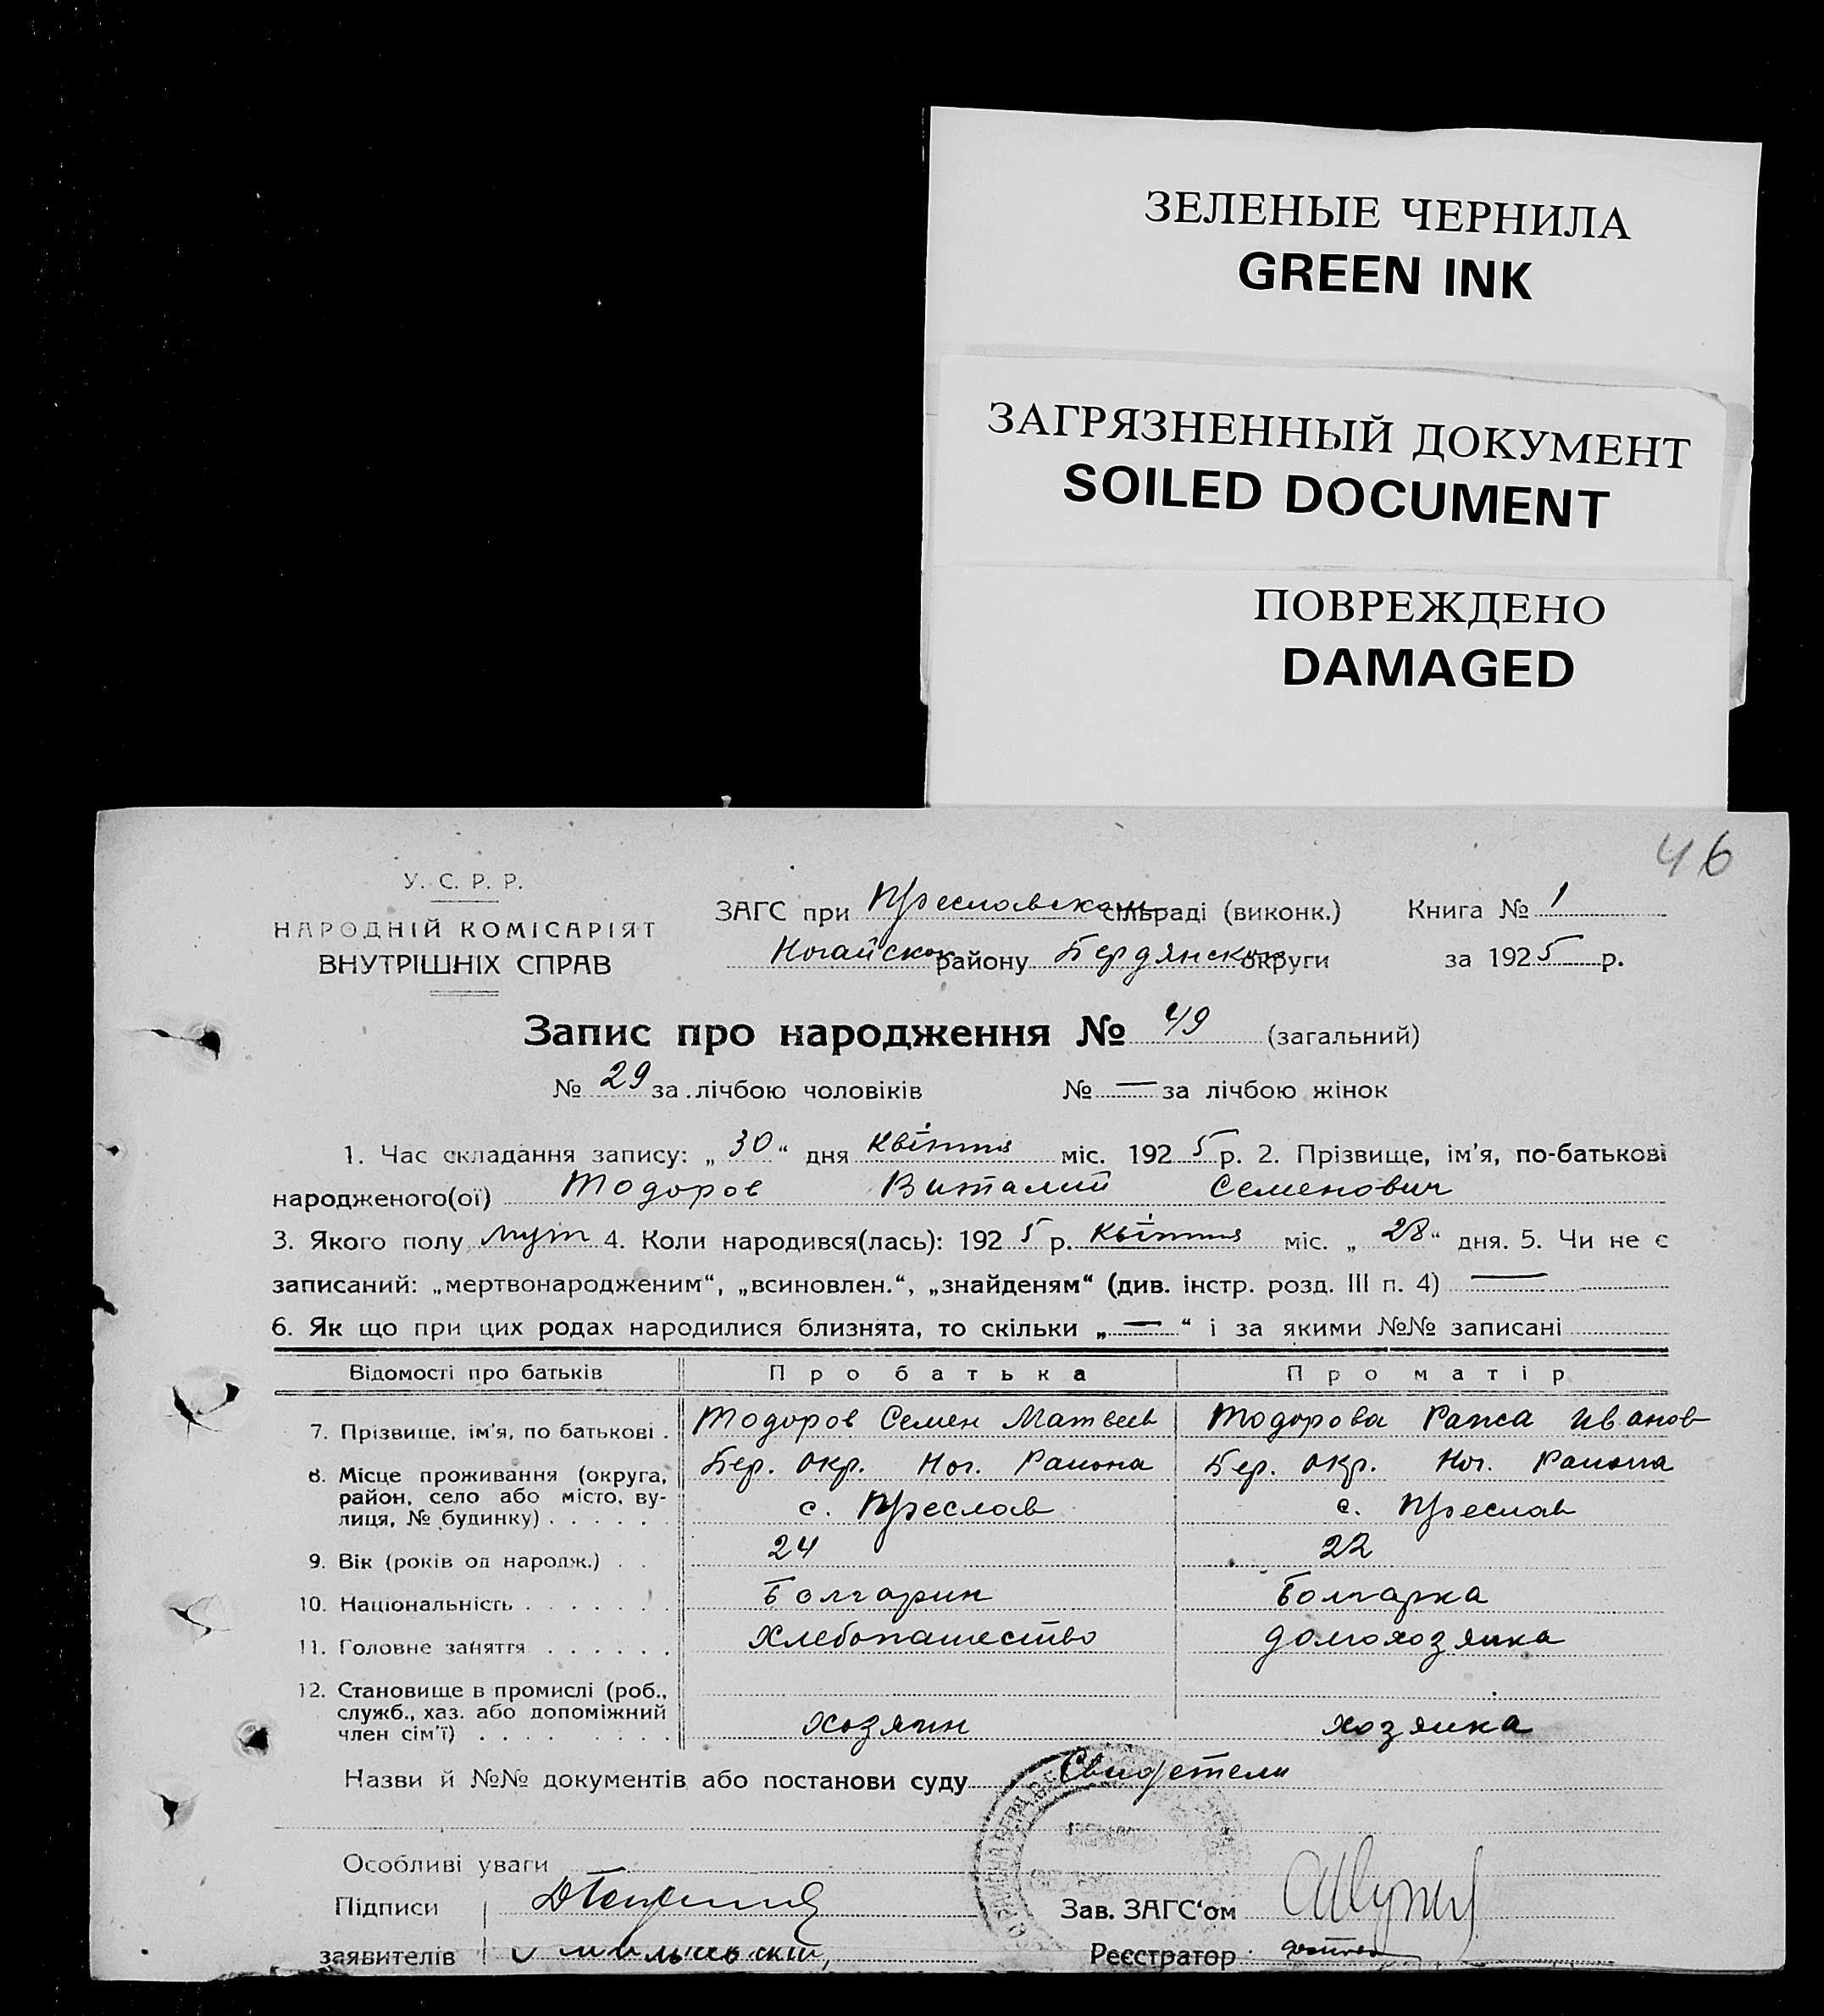 ЗЕЛЕНЫЕ ЧЕРНИЛА
GREEN INK
ЗАГРЯЗНЕННЫЙ ДОКУМЕНТ
SOILED DOCUMENT
ПОВРЕЖДЕНО
DAMAGED
46
У. С. Р. Р.
НАРОДНІЙ КОМІСАРІЯТ
ВНУТРІШНІХ СПРАВ
ЗАГС при Преславском сільраді (виконк.) Книга № 1
Ногайском району Бердянском округи за 1925 р.
Запис про народження № 49 (загальний)
№ 29 за лічбою чоловіків № — за лічбою жінок
1. Час складання запису: „30“ дня Квітня міс. 1925 р. 2. Прізвище, ім'я, по-батькові
народженого(ої) Тодоров Виталий Семенович
3. Якого полу муж 4. Коли народився(лась): 1925 р. Квітня міс. „28“ дня. 5. Чи не є
записаний: „мертвонародженим“, „всиновлен.“, „знайденям“ (див. інстр. розд. III п. 4) —
6. Як що при цих родах народилися близнята, то скільки „—“ і за якими №№ записані
Відомості про батьків Про батька Про матір
7. Прізвище, ім'я, по батькові . Тодоров Семен Матвеев Тодорова Раиса Иванов
8. Місце проживання (округа, Бер. окр. Ног. Района Бер. окр. Ног. Района
район, село або місто, ву-
лиця, № будинку) . . . . . с. Преслав с. Преслав
9. Вік (років од народж.) . . 24 22
10. Національність . . . . . . . Болгарин Болгарка
11. Головне заняття . . . . . . Хлебопашество домохозяйка
12. Становище в промислі (роб.,
служб., хаз. або допоміжний
член сім'ї) . . . . . . . . хозяин хозяйка
Назви й №№ документів або постанови суду Свидетели
Особливі уваги
Підписи
Зав. ЗАГС'ом
заявителів
Реєстратор